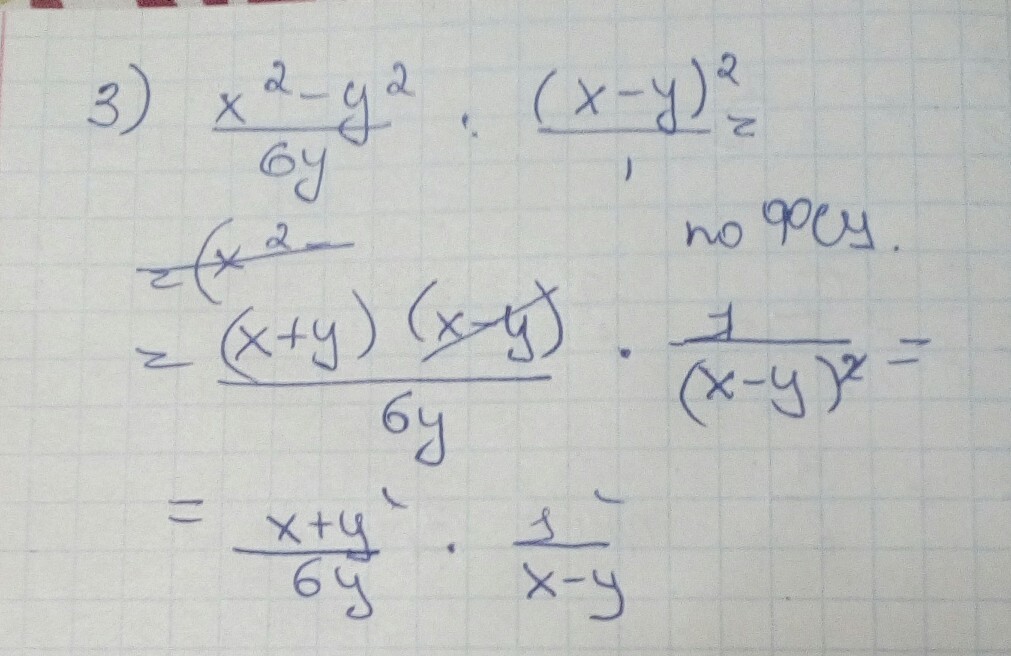 3) x² - y² / 6y : (x-y)² / 1 =
по ФСУ.
= (x²-
= (x+y) (x-y) / 6y · 1 / (x-y)² =
= x+y / 6y · 1 / x-y